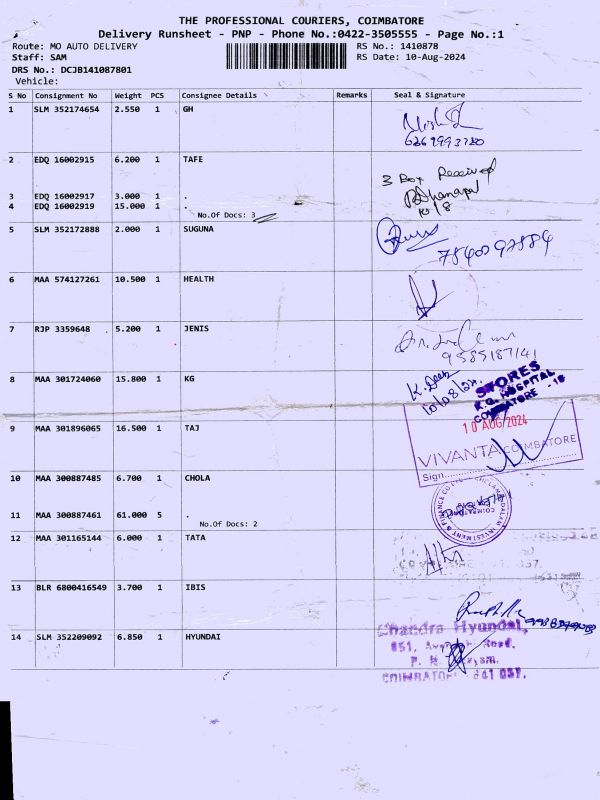 THE PROFESSIONAL COURIERS, COIMBATORE
Delivery Runsheet - PNP - Phone No.:0422-3505555 - Page No.:1
Route: MO AUTO DELIVERY RS No.: 1410878
Staff: SAM RS Date: 10-Aug-2024
DRS No.: DCJB141087801
Vehicle:
S No Consignment No Weight PCS Consignee Details Remarks Seal & Signature
1 SLM 352174654 2.550 1 GH
2 EDQ 16002915 6.200 1 TAFE
3 Box Received
3 EDQ 16002917 3.000 1 .
4 EDQ 16002919 15.000 1 .
10/8
No.Of Docs: 3
5 SLM 352172888 2.000 1 SUGUNA
6 MAA 574127261 10.500 1 HEALTH
7 RJP 3359648 5.200 1 JENIS
9585187141
8 MAA 301724060 15.800 1 KG
10/08/24
STORES
K.G. HOSPITAL
COIMBATORE - 18
10 AUG 2024
9 MAA 301896065 16.500 1 TAJ
VIVANTA COIMBATORE
Sign
10 MAA 300887485 6.700 1 CHOLA
11 MAA 300887461 61.000 5 .
No.Of Docs: 2
INVESTMENT & FINANCE CO
COIMBATORE
12 MAA 301165144 6.000 1 TATA
13 BLR 6800416549 3.700 1 IBIS
14 SLM 352209092 6.850 1 HYUNDAI
Chandra Hyundai,
851, Road,
COIMBATORE 641 037.